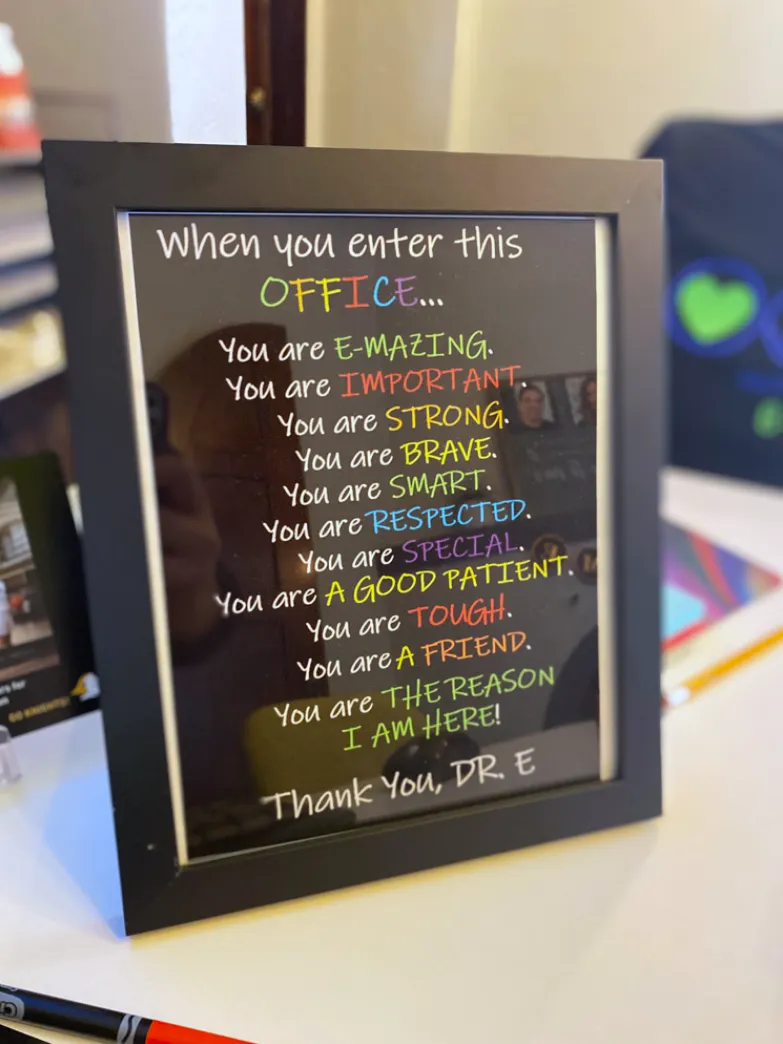 When you enter this
OFFICE...
You are E-MAZING.
You are IMPORTANT.
You are STRONG.
You are BRAVE.
You are SMART.
You are RESPECTED.
You are SPECIAL.
You are A GOOD PATIENT.
You are TOUGH.
You are A FRIEND.
You are THE REASON
I AM HERE!
Thank You, DR. E
GO KNIGHTS!